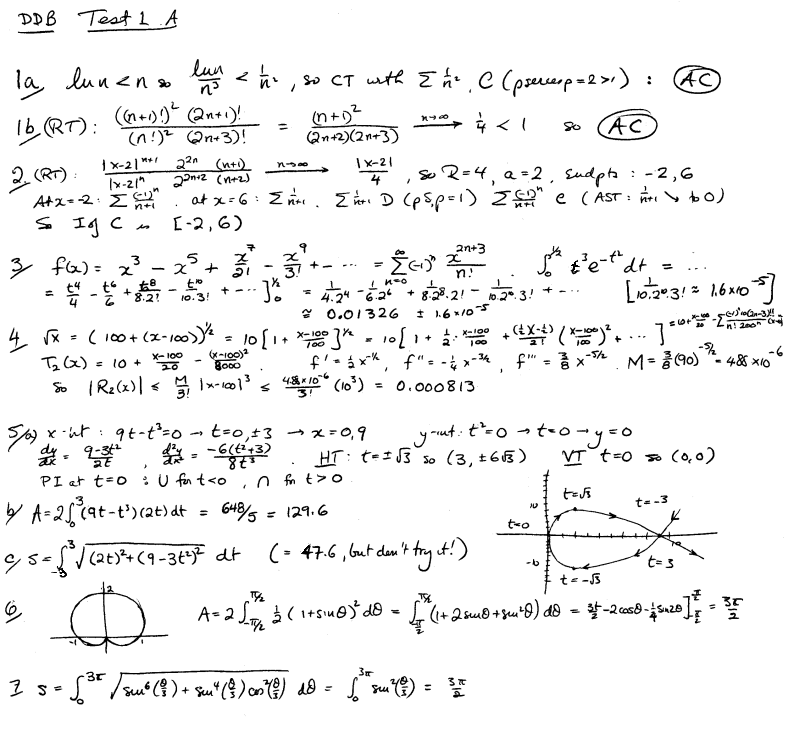 DDB Test 1 A
1a, lnn < n so lnn/n³ < 1/n², so CT with Σ 1/n², C (pseries p=2>1) : AC
1b, (RT) : ((n+1)!)² (2n+1)! / (n!)² (2n+3)! = (n+1)² / (2n+2)(2n+3) n→∞ → 1/4 < 1 so AC
2, (RT) : |x-2|ⁿ⁺¹ 2²ⁿ (n+1) / |x-2|ⁿ 2²ⁿ⁺² (n+2) n→∞ → |x-2|/4, so R=4, a=2, endpts : -2, 6
At x=-2: Σ (-1)ⁿ/n+1. at x=6 : Σ 1/n+1. Σ 1/n+1 D (pS, p=1) Σ (-1)ⁿ/n+1 C (AST: 1/n+1 ↘ to 0)
So I of C is [-2, 6)
3, f(x) = x³ - x⁵ + x⁷/2! - x⁹/3! + - ... = Σ n=0 ∞ (-1)ⁿ x²ⁿ⁺³/n! . ∫₀^½ t³e^-t² dt = ...
= t⁴/4 - t⁶/6 + t⁸/8.2! - t¹⁰/10.3! + - ... ]₀^½ = 1/4.2⁴ - 1/6.2⁶ + 1/8.2⁸.2! - 1/10.2¹⁰.3! + - ... [1/10.2¹⁰.3! ≈ 1.6×10⁻⁵]
≈ 0.01326 ± 1.6×10⁻⁵
4, √x = (100+(x-100))^½ = 10[1 + x-100/100]^½ = 10[1 + 1/2 · x-100/100 + (½)(-½)/2! (x-100/100)² + ...]
T₂(x) = 10 + x-100/20 - (x-100)²/8000 f' = ½x^-½, f'' = -¼x^-3/2, f''' = 3/8 x^-5/2. M = 3/8(90)^-5/2 = 4.88×10⁻⁶
so |R₂(x)| ≤ M/3! |x-100|³ ≤ 4.88×10⁻⁶/3! (10³) = 0.000813
5/a) x-int : 9t-t³=0 → t=0, ±3 → x=0, 9 y-int: t²=0 → t=0 → y=0
dy/dx = 9-3t²/2t, d²y/dx² = -6(t²+3)/8t³. HT: t=±√3 so (3, ±6√3) VT t=0 so (0,0)
PI at t=0 : ∪ for t<0, ∩ for t>0
b/ A = 2∫₀³(9t-t³)(2t)dt = 648/5 = 129.6
10 t=√3 t=-3
t=0
c/ s = ∫₋₃³ √((2t)²+(9-3t²)²) dt (= 47.6, but don't try it!)
-10 t=-√3 t=3
6, 2 -1 1 A = 2∫_-π/2^π/2 ½(1+sinθ)² dθ = ∫_-π/2^π/2 (1+2sinθ+sin²θ) dθ = 3θ/2 - 2cosθ - ¼sin2θ]_-π/2^π/2 = 3π/2
7 s = ∫₀^3π √(sin⁶(θ/3) + sin⁴(θ/3)cos²(θ/3)) dθ = ∫₀^3π sin²(θ/3) = 3π/2